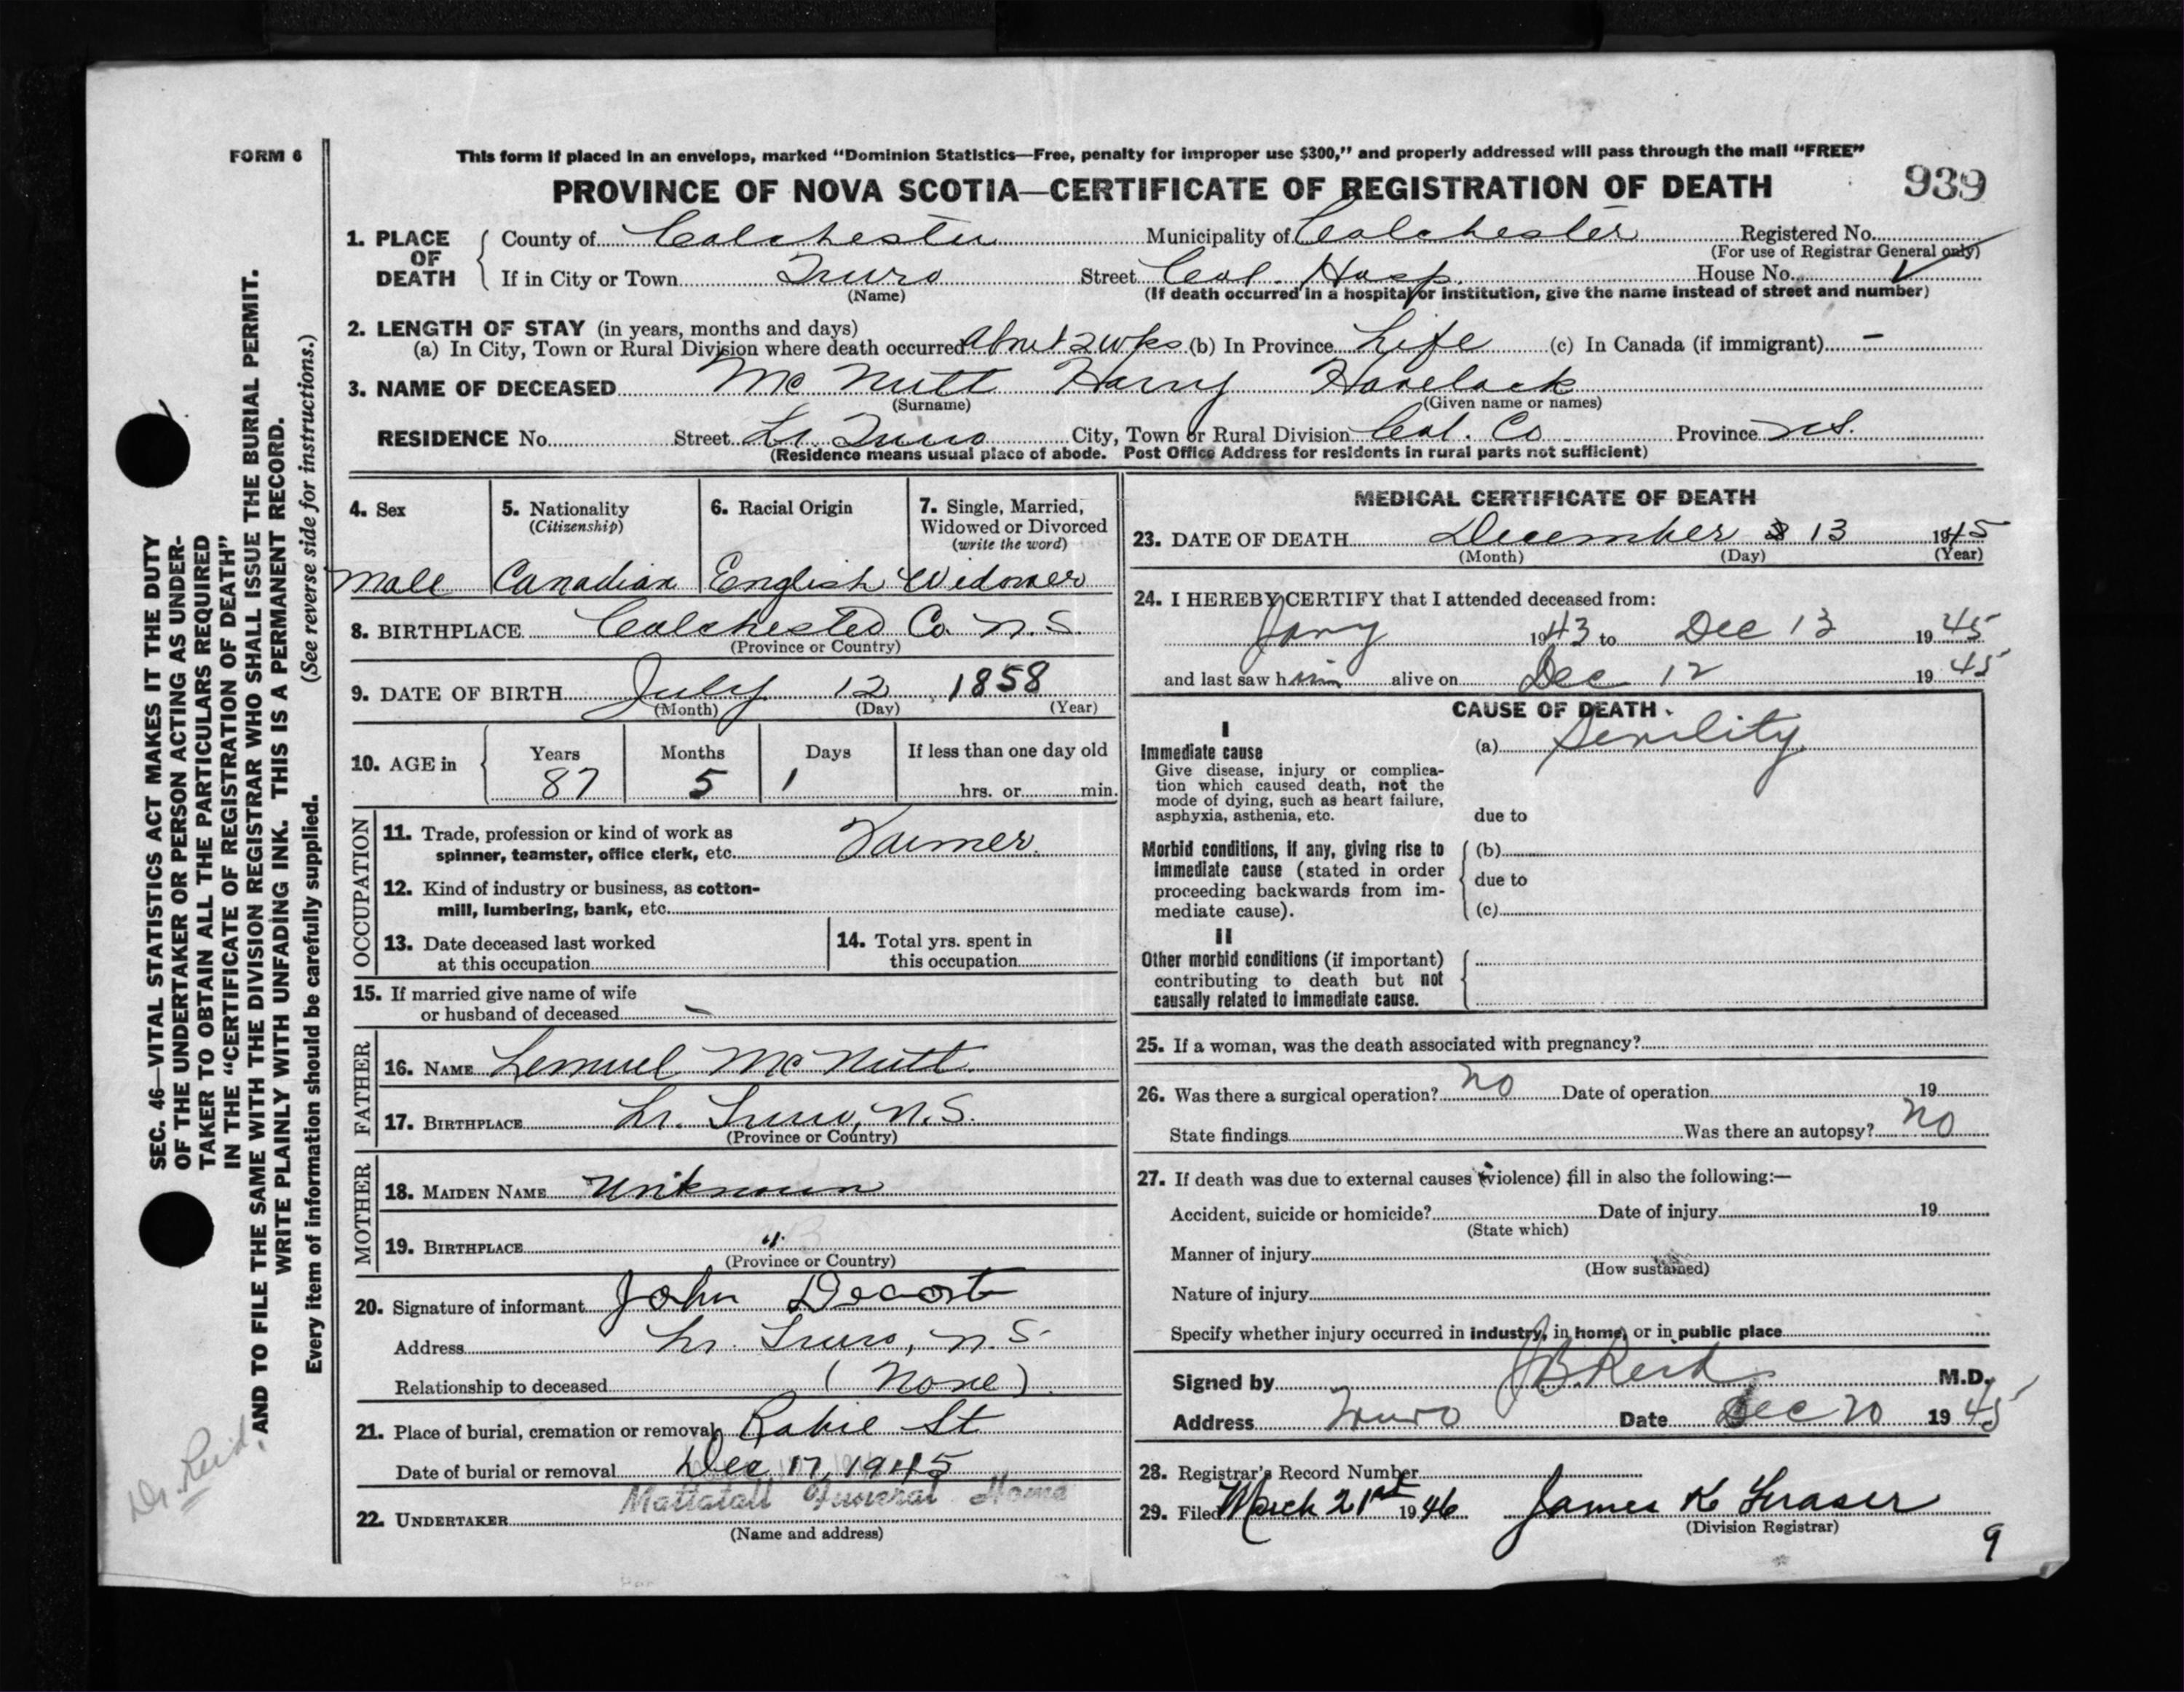 FORM 6
This form if placed in an envelope, marked “Dominion Statistics—Free, penalty for improper use $300,” and properly addressed will pass through the mail “FREE”
PROVINCE OF NOVA SCOTIA—CERTIFICATE OF REGISTRATION OF DEATH
939
1. PLACE OF DEATH
County of Colchester Municipality of Colchester Registered No.
(For use of Registrar General only)
If in City or Town Truro Street Col. Hosp. House No.
(Name) (If death occurred in a hospital or institution, give the name instead of street and number)
2. LENGTH OF STAY (in years, months and days)
(a) In City, Town or Rural Division where death occurred About 2 wks (b) In Province Life (c) In Canada (if immigrant) –
3. NAME OF DECEASED Mc Nutt Harry Havelock
(Surname) (Given name or names)
RESIDENCE No. Street Lr. Truro City, Town or Rural Division Col. Co Province N.S.
(Residence means usual place of abode. Post Office Address for residents in rural parts not sufficient)
4. Sex
Male
5. Nationality
(Citizenship)
Canadian
6. Racial Origin
English
7. Single, Married,
Widowed or Divorced
(write the word)
Widower
8. BIRTHPLACE Colchester Co. N.S.
(Province or Country)
9. DATE OF BIRTH July 12, 1858
(Month) (Day) (Year)
10. AGE in
Years Months Days If less than one day old
87 5 1 hrs. or min.
OCCUPATION
11. Trade, profession or kind of work as
spinner, teamster, office clerk, etc. Farmer
12. Kind of industry or business, as cotton-
mill, lumbering, bank, etc.
13. Date deceased last worked
at this occupation
14. Total yrs. spent in
this occupation
15. If married give name of wife
or husband of deceased –
FATHER
16. NAME Lemuel McNutt
17. BIRTHPLACE Lr. Truro, N.S.
(Province or Country)
MOTHER
18. MAIDEN NAME Unknown
19. BIRTHPLACE "
(Province or Country)
20. Signature of informant John
Address Lr. Truro, N.S.
Relationship to deceased (None)
21. Place of burial, cremation or removal Robie St
Date of burial or removal Dec 17, 1945
22. UNDERTAKER Mattatall Funeral Home
(Name and address)
MEDICAL CERTIFICATE OF DEATH
23. DATE OF DEATH December 13 1945
(Month) (Day) (Year)
24. I HEREBY CERTIFY that I attended deceased from:
Jany 1943 to Dec 13 1945
and last saw him alive on Dec 12 1945
CAUSE OF DEATH
I
Immediate cause
Give disease, injury or complica-
tion which caused death, not the
mode of dying, such as heart failure,
asphyxia, asthenia, etc.
(a) Senility
due to
Morbid conditions, if any, giving rise to
immediate cause (stated in order
proceeding backwards from im-
mediate cause).
(b)
due to
(c)
II
Other morbid conditions (if important)
contributing to death but not
causally related to immediate cause.
25. If a woman, was the death associated with pregnancy?
26. Was there a surgical operation? No Date of operation 19
State findings Was there an autopsy? No
27. If death was due to external causes (violence) fill in also the following:—
Accident, suicide or homicide? Date of injury 19
(State which)
Manner of injury
(How sustained)
Nature of injury
Specify whether injury occurred in industry, in home, or in public place
Signed by J B. Reid M.D.
Address Truro Date Dec 20 1945
28. Registrar's Record Number
29. Filed March 21st 1946 James K Fraser
(Division Registrar)
9
SEC. 46—VITAL STATISTICS ACT MAKES IT THE DUTY
OF THE UNDERTAKER OR PERSON ACTING AS UNDER-
TAKER TO OBTAIN ALL THE PARTICULARS REQUIRED
IN THE “CERTIFICATE OF REGISTRATION OF DEATH”
AND TO FILE THE SAME WITH THE DIVISION REGISTRAR WHO SHALL ISSUE THE BURIAL PERMIT.
WRITE PLAINLY WITH UNFADING INK. THIS IS A PERMANENT RECORD.
Every item of information should be carefully supplied. (See reverse side for instructions.)
Dr. Reid.